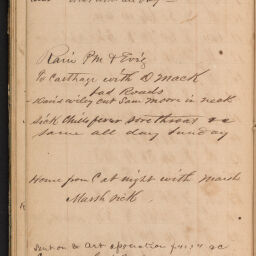 Rain PM & Ev'g
To Carthage with D Mack
bad Roads
Davis wiley cut Sam Moore in neck
sick Chills fever sore throat &c
same all day Sunday
Home from C at night with Marsh
Marsh sick.